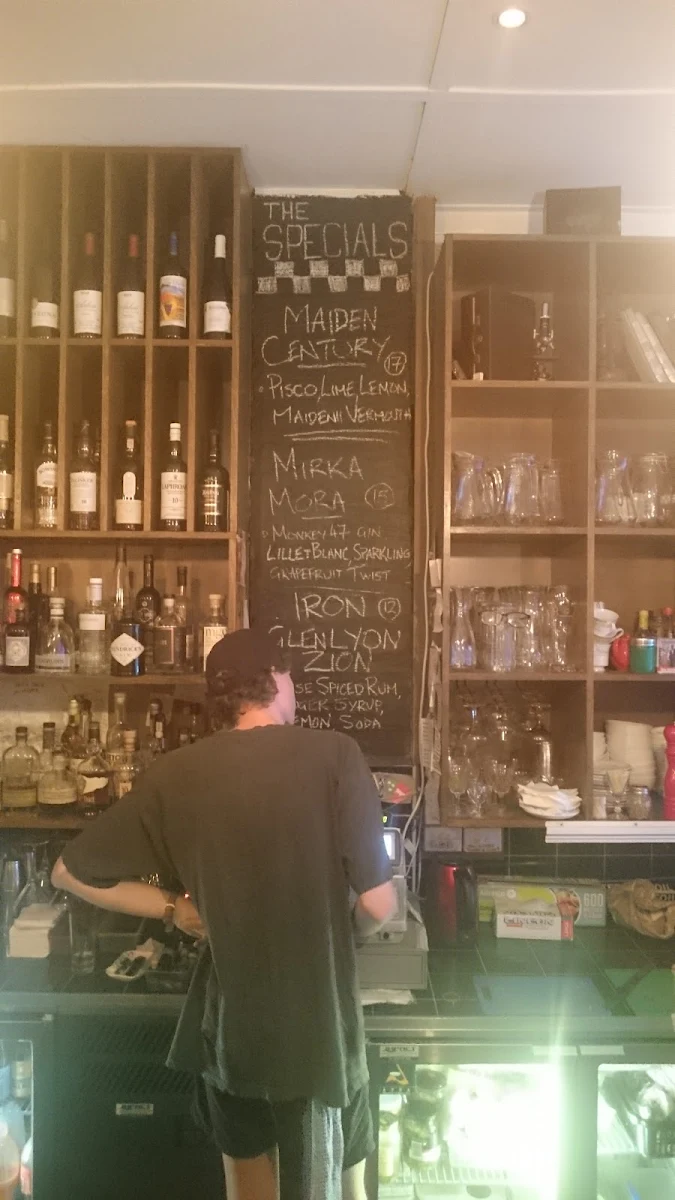 THE
SPECIALS
MAIDEN
CENTURY 17
PISCO, LIME LEMON,
MAIDENII VERMOUTH
MIRKA
MORA 15
MONKEY 47 GIN
LILLET BLANC, SPARKLING
GRAPEFRUIT TWIST
IRON 12
GLENLYON
ZION
SE SPICED RUM,
SYRUP,
EMON SODA
600